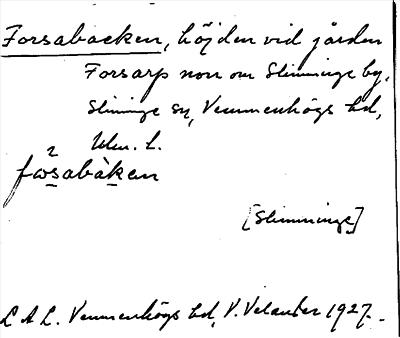 Forsabacken, höjden vid gården
Forsarp norr om Slimminge by,
Slimminge sn, Vemmenhögs hd,
Mlm. L.
[Slimminge]
L A L. Vemmenhögs hd, V. Velander 1927.